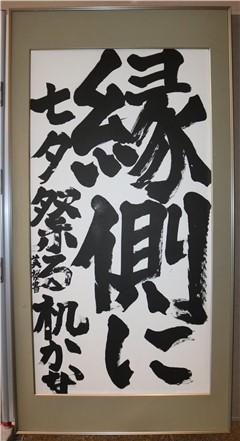 縁側に
七夕祭る机かな